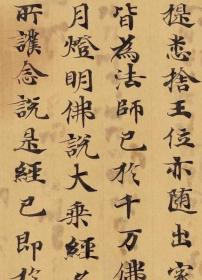 提悉捨王位亦随出家
皆為法師已於千万佛
月燈明佛說大乗經名
所護念說是經已即於